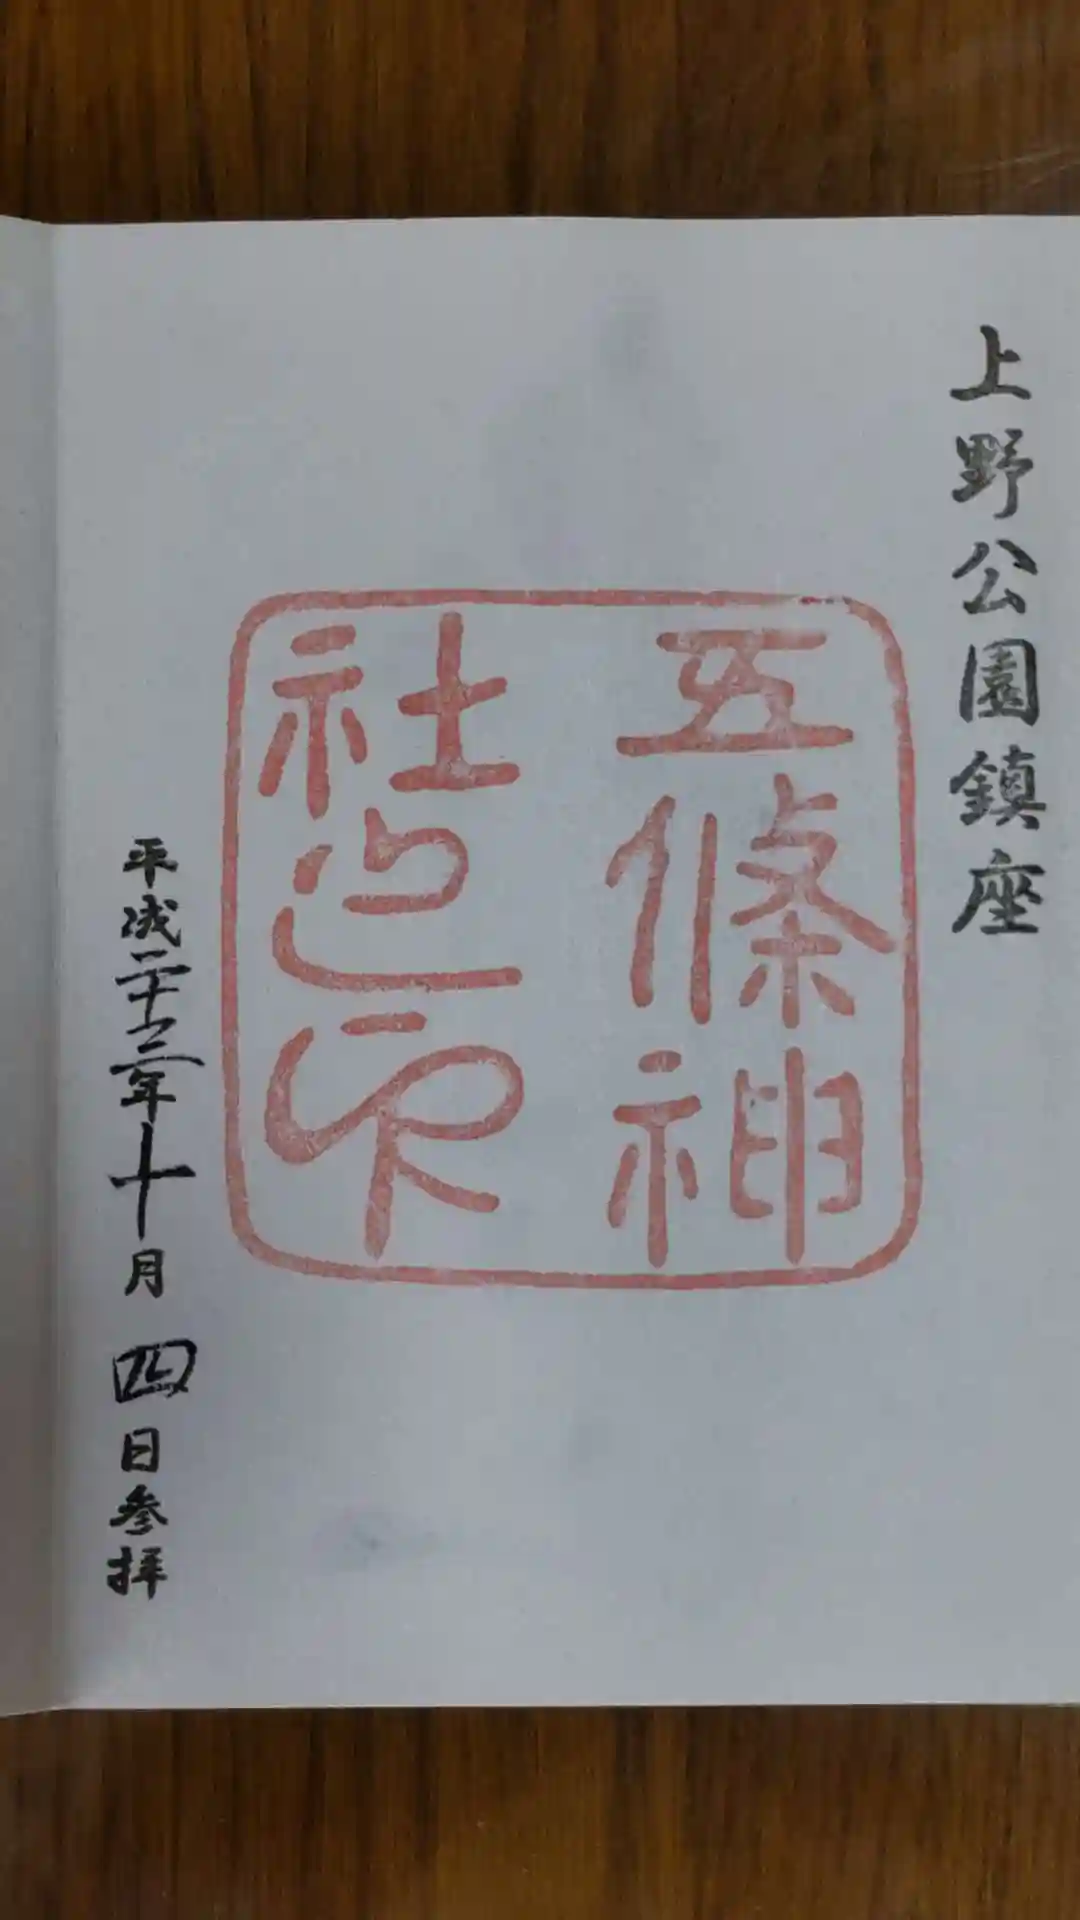 上野公園鎮座
五條神
社之印
平成二十三年十月四日参拝